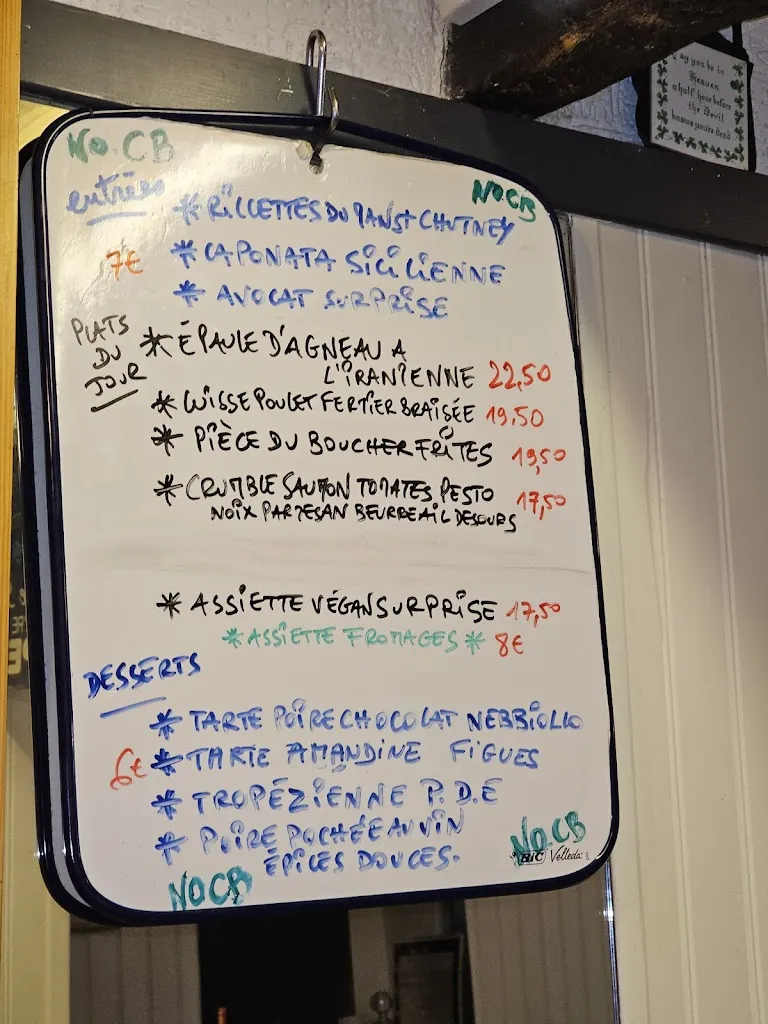 No CB
No CB
entrées
* RILLETTES DU MANS + CHUTNEY
7€
* CAPONATA SICILIENNE
* AVOCAT SURPRISE
PLATS DU JOUR
* ÉPAULE D'AGNEAU A
L'IRANIENNE 22,50
* CUISSE POULET FERMIER BRAISÉE 19.50
* PIÈCE DU BOUCHER FRITES 19,50
* CRUMBLE SAUMON TOMATES PESTO 17,50
NOIX PARMESAN BEURRE AIL DES OURS
* ASSIETTE VÉGAN SURPRISE 17,50
* ASSIETTE FROMAGES * 8€
DESSERTS
* TARTE POIRE CHOCOLAT NEBBIOLLO
6€ * TARTE AMANDINE FIGUES
* TROPÉZIENNE P.D.É
* POIRE POCHÉE AU VIN
ÉPICES DOUCES.
No CB
No CB
BIC Velleda
ay you be in
Heaven
a half hour before
the Devil
knows you're dead